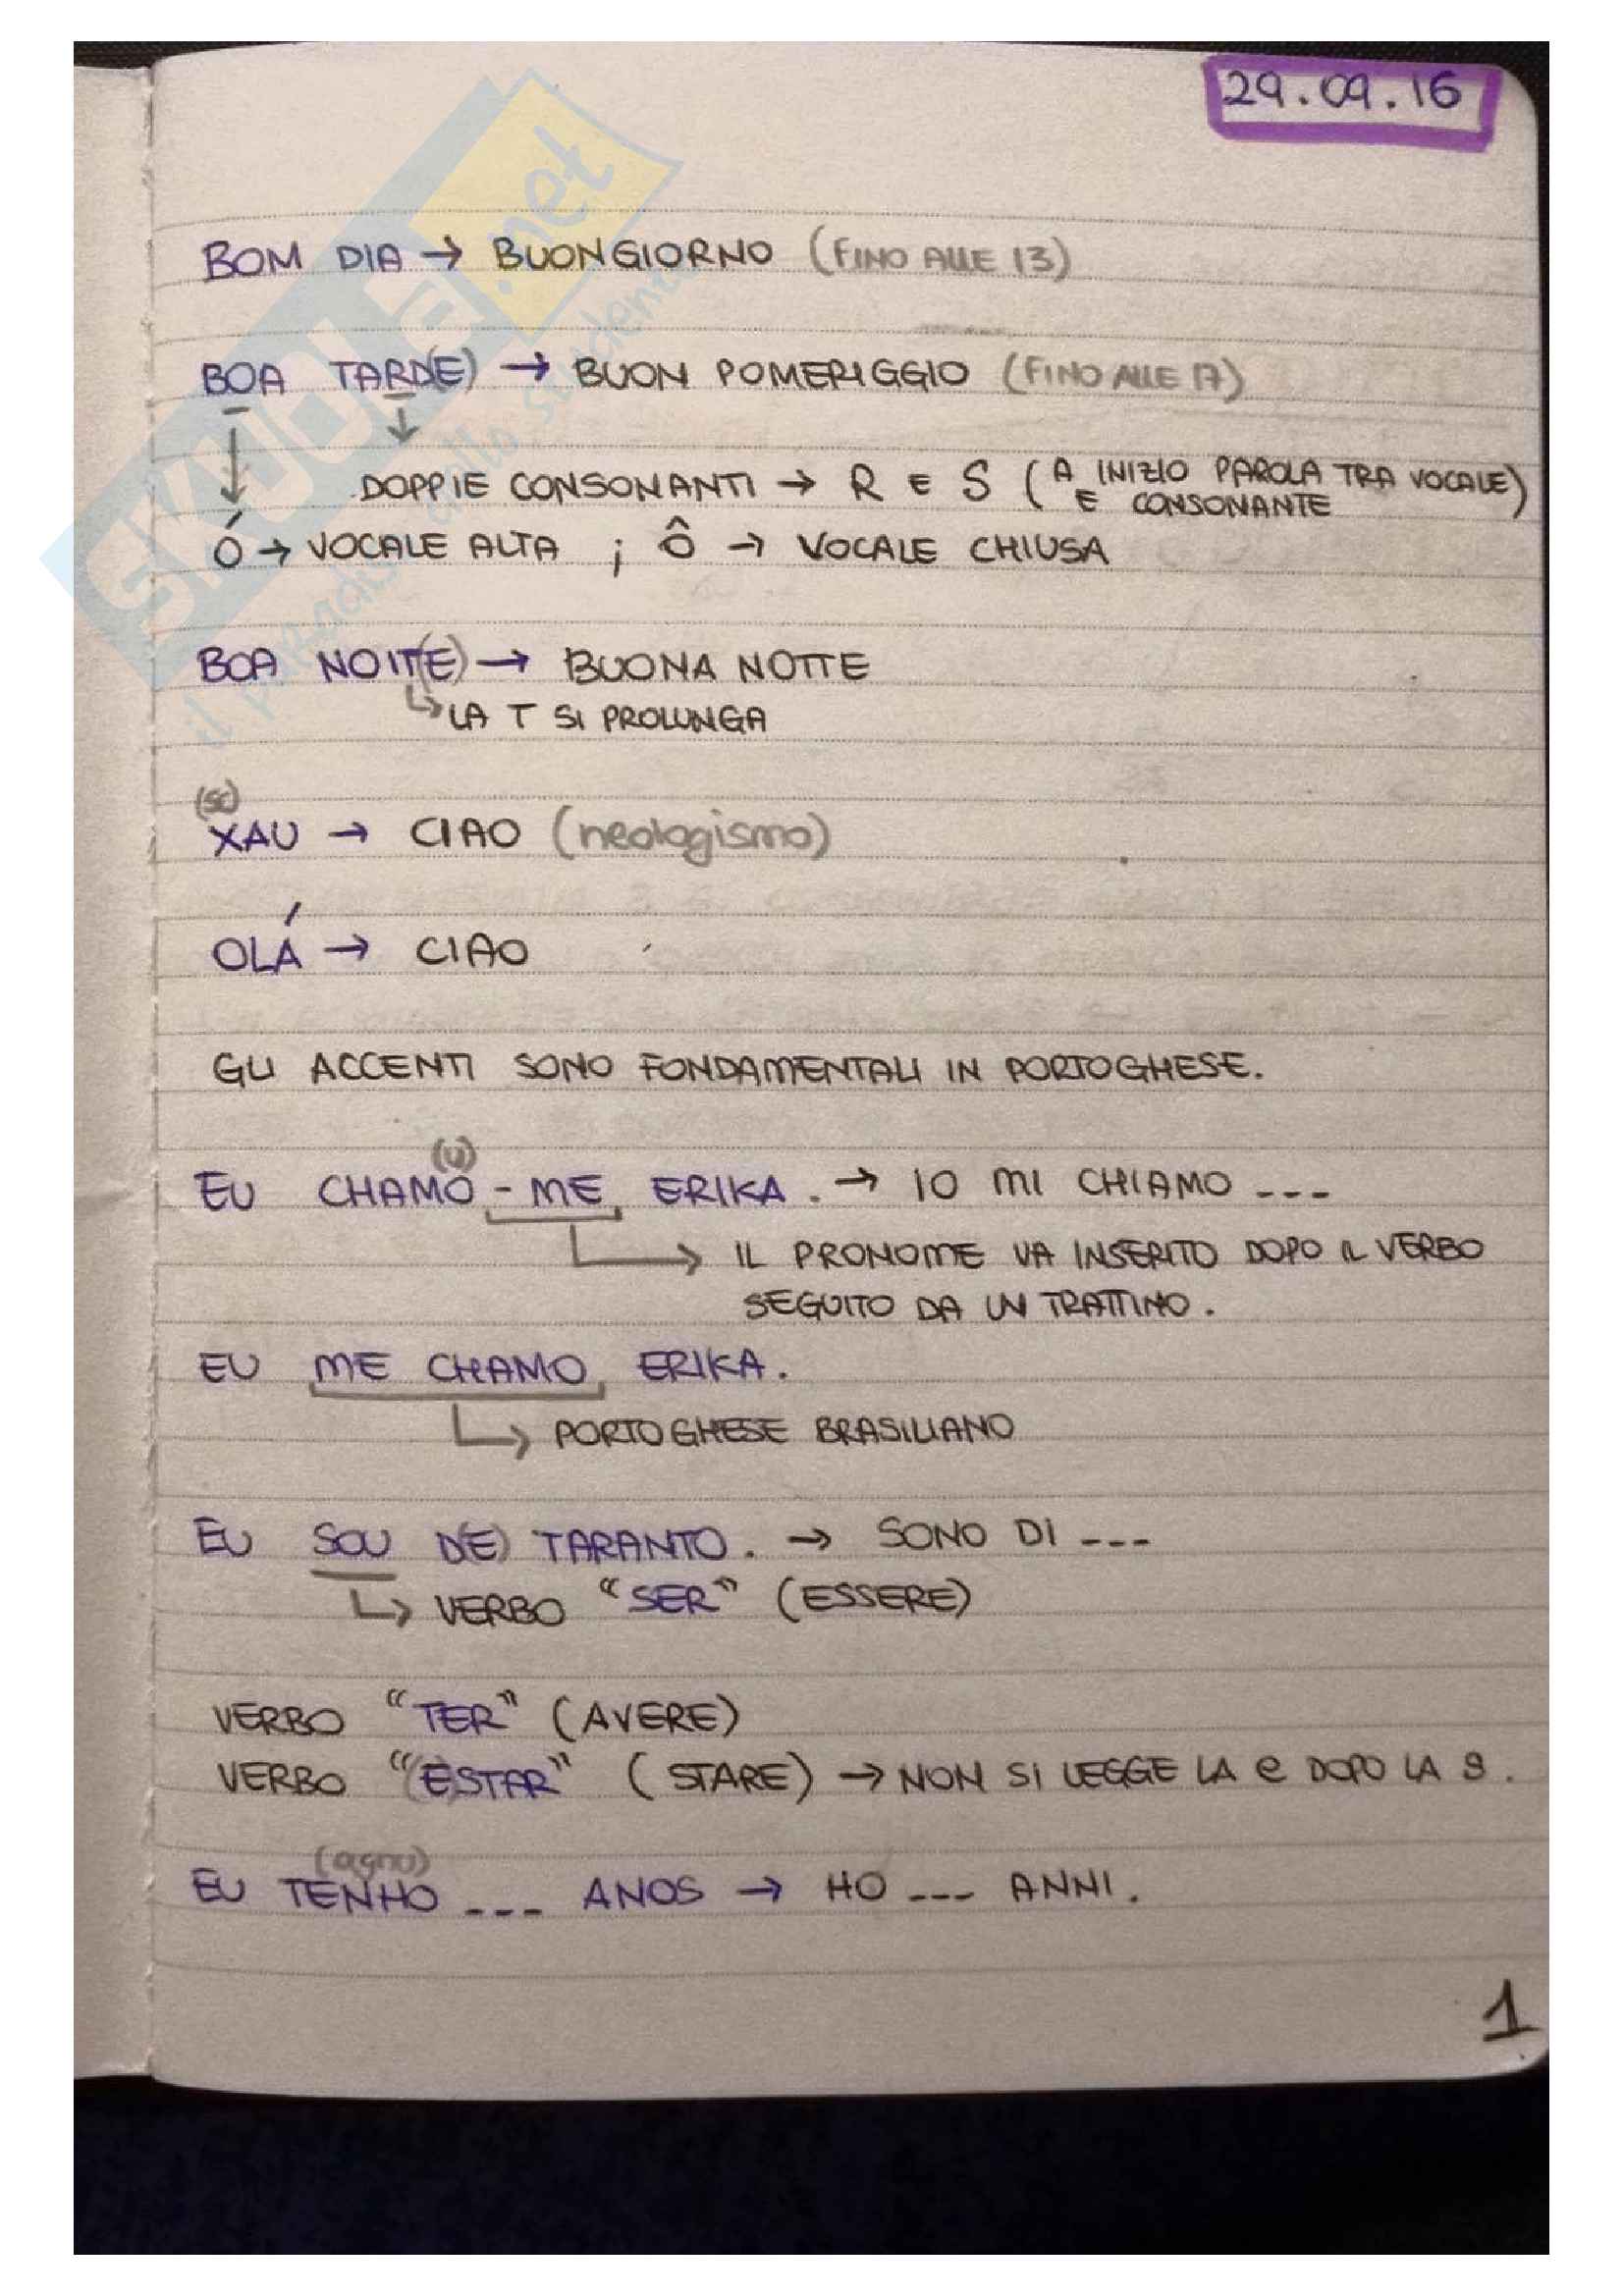 29.09.16
BOM DIA → BUONGIORNO (FINO ALLE 13)
BOA TARD(E) → BUON POMERIGGIO (FINO ALLE 17)
DOPPIE CONSONANTI → R E S (A INIZIO PAROLA TRA VOCALE
E CONSONANTE)
Ó → VOCALE ALTA ; Ô → VOCALE CHIUSA
BOA NOIT(E) → BUONA NOTTE
↳ LA T SI PROLUNGA
(sc)
XAU → CIAO (neologismo)
OLÁ → CIAO
GLI ACCENTI SONO FONDAMENTALI IN PORTOGHESE.
(U)
EU CHAMO-ME ERIKA. → IO MI CHIAMO ---
↳ IL PRONOME VA INSERITO DOPO IL VERBO
SEGUITO DA UN TRATTINO.
EU ME CHAMO ERIKA.
↳ PORTOGHESE BRASILIANO
EU SOU D(E) TARANTO. → SONO DI ---
↳ VERBO "SER" (ESSERE)
VERBO "TER" (AVERE)
VERBO "(E)STAR" (STARE) → NON SI LEGGE LA e DOPO LA S.
(agnu)
EU TENHO --- ANOS → HO --- ANNI.
1
SKUOLA.net
il paradiso dello studente